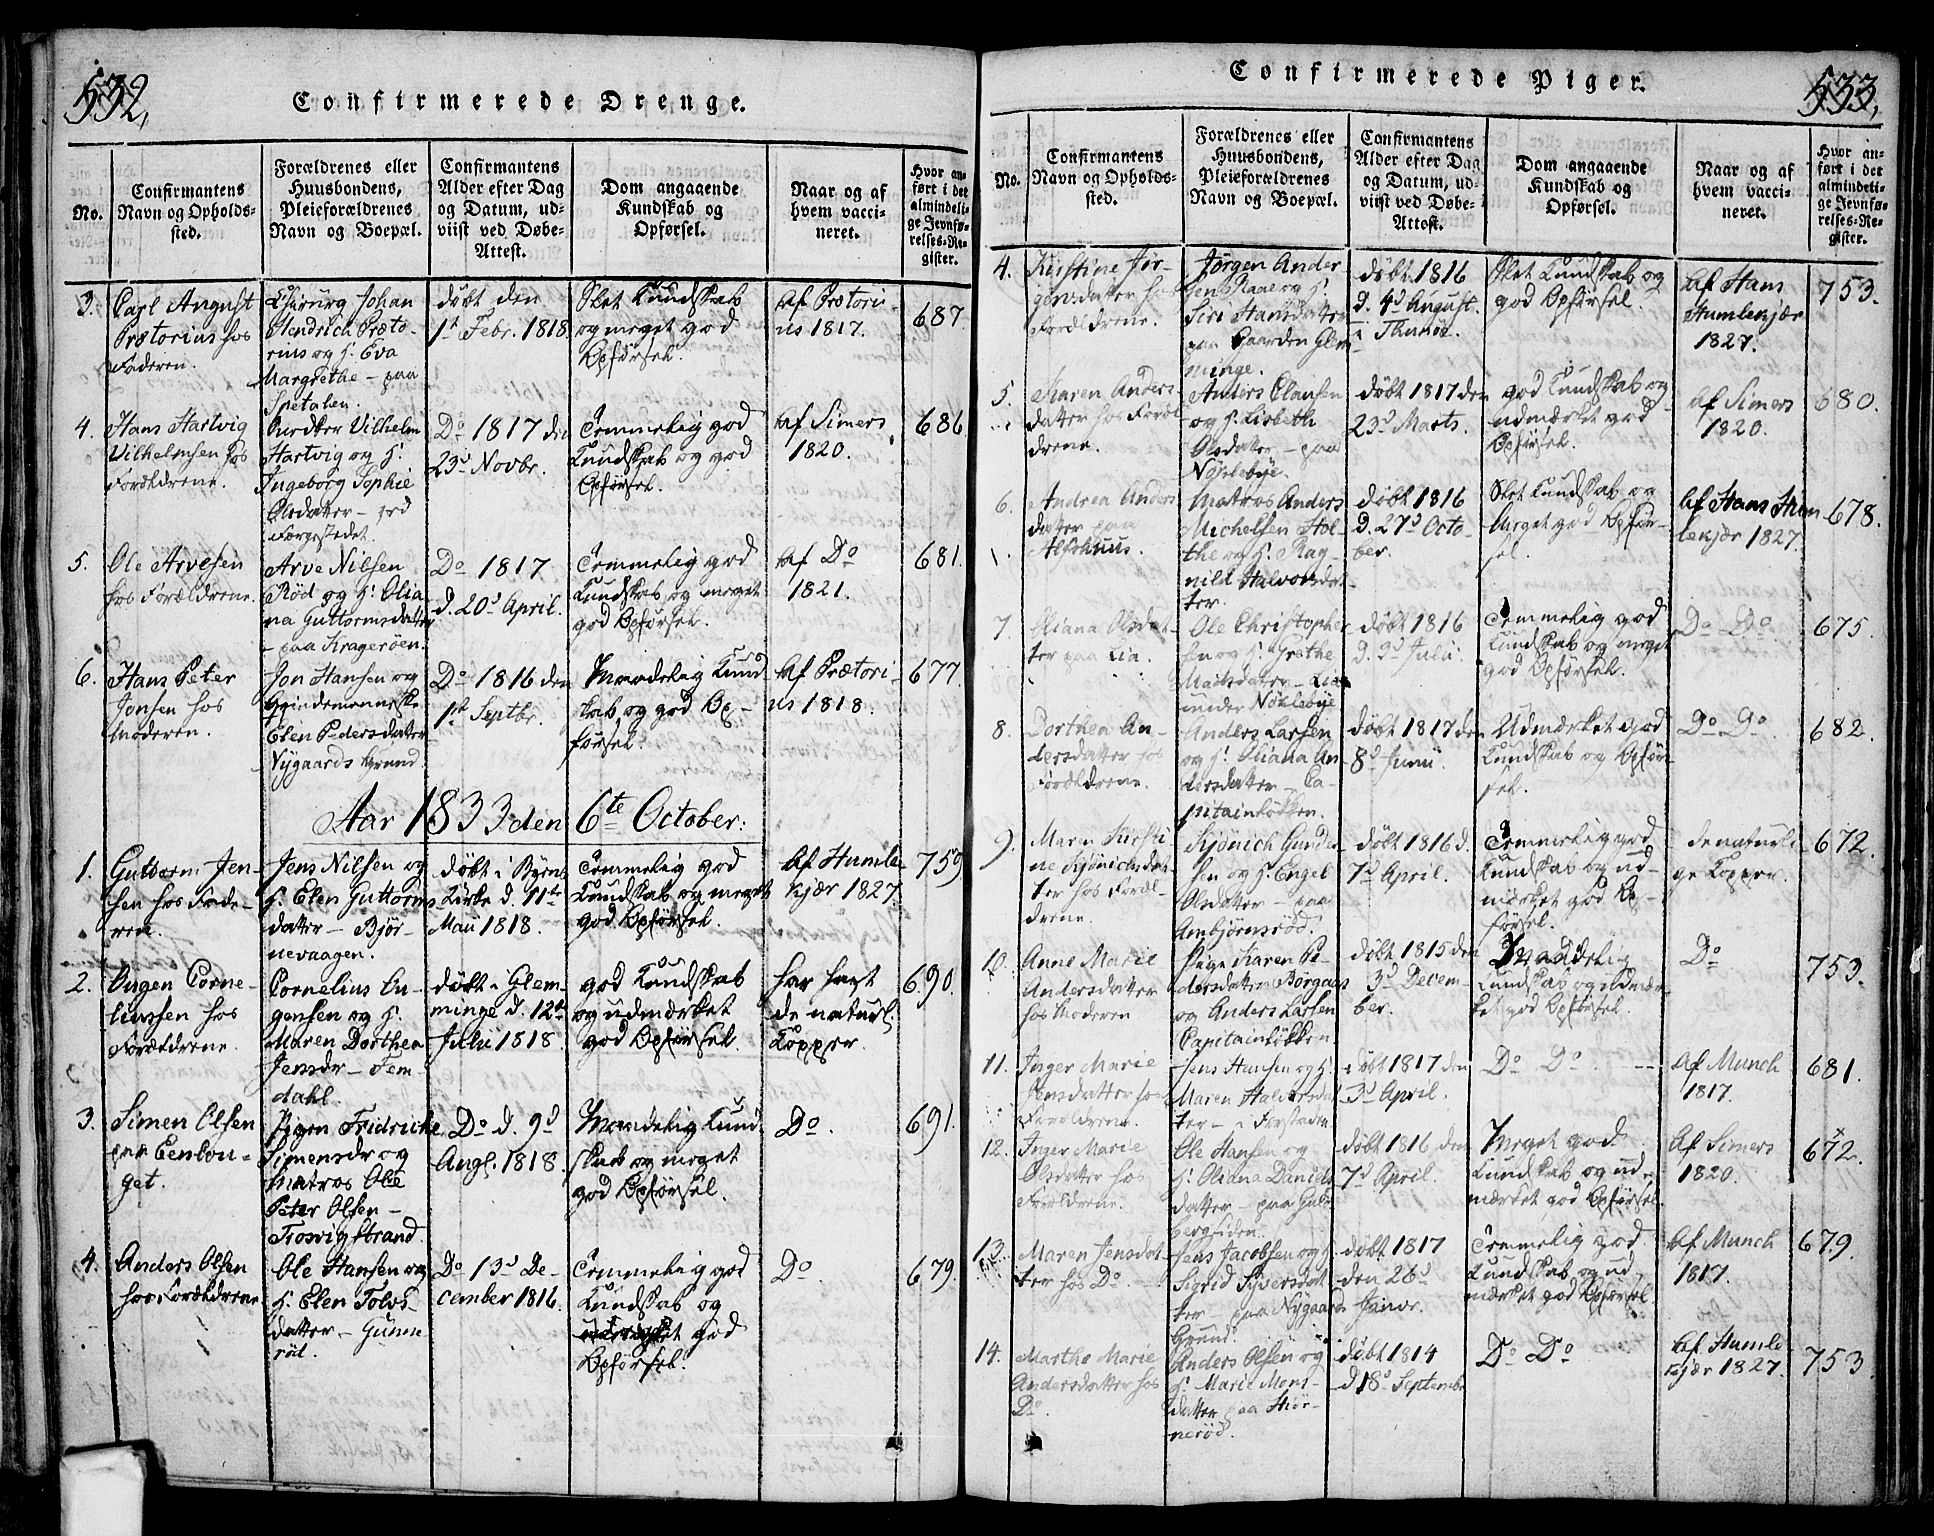 532.
Confirmerede Drenge.
No.
Confirmantens
Navn og Opholds-
sted.
Forældrenes eller
Huusbondens,
Pleieforældrenes
Navn og Boepæl.
Confirmantens
Alder efter Dag
og Datum, ud-
viist ved Døbe-
Attest.
Dom angaaende
Kundskab og
Opførsel.
Naar og af
hvem vacci-
neret.
Hvor an-
ført i det
almindeli-
ge Jevnfø-
relses-Re-
gister.
3.
Carl August
Prætorius hos
Faderen.
Chirurg Johan
Hendrich Præto-
rius og H. Eva
Margrethe - paa
Spetalen.
døbt den
1t Febr. 1818.
Slet Kundskab
og meget god
Opførsel.
Af Prætori-
us 1817.
687
4.
Hans Hartvig
Vilhelmsen hos
Forældrene.
Vilhelm
Hartvig og H.
Ingeborg Sophie
Olsdatter - ved
Færgestedet.
Do 1817 den
23d Novbr.
Temmelig god
Kundskab og god
Opførsel.
Af Simers
1820.
686
5.
Ole Arvesen
hos Forældrene.
Arve Nilsen
Rød og H. Olia
na Guttormsdatter
- paa Kragerøen.
Do 1817
d. 20d April.
Temmelig god
Kundskab og meget
god Opførsel.
Af Do
1821.
681.
6.
Hans Peter
Jonsen hos
Moderen.
Jon Hansen og
Qvindemenneske
Elen Pedersdatter
Nygaards Grund.
Do 1816 den
1te Septbr.
Maadelig Kund
skab og god Op-
førsel.
Af Prætori-
us 1818.
677
Aar 1833 den 6te October:
1.
Guttorm Jen-
sen hos Fade-
ren.
Jens Nilsen og
H. Elen Guttorms
datter - Bjør-
nevaagen.
døbt i Byens
Kirke d. 11te
Maii 1818.
Temmelig god
Kundskab og meget
god Opførsel.
Af Humle
kjær 1827
759
2.
Eugen Corne-
liussen hos
Forældrene.
Cornelius Eu-
gensen og H.
Maren Dorthea
Jensdr - Fem-
dahl.
døbt i Glem-
minge d. 12te
Julii 1818.
god Kundskab
og udmærket
god Opførsel.
har havt
de naturl.
Kopper.
690.
3.
Simen Olsen
paa Eenhou-
get.
Pigen Fridriche
Simensdr og
Matros Ole
Peter Olsen -
Trosvigstrand.
Do d. 9d
Augs. 1818.
Maadelig Kund
skab og meget
god Opførsel.
Do.
691.
4.
Anders Olsen
hos Forældrene
Ole Hansen og
H. Elen Tolvs-
datter - Gunne
röd.
Do 13d De-
cember 1816.
Temmelig god
Kundskab og
god
Opførsel.
Do.
679.
Confirmerede Piger.
533.
No.
Confirmantens
Navn og Opholds-
sted.
Forældrenes eller
Huusbondens,
Pleieforældrenes
Navn og Boepæl.
Confirmantens
Alder efter Dag
og Datum, ud-
viist ved Døbe-
Attest.
Dom angaaende
Kundskab og
Opførsel.
Naar og af
hvem vacci-
neret.
Hvor an-
ført i det
almindeli-
ge Jevnfø-
relses-Re-
gister.
4.
Kirstine Jør-
gensdatter hos
Forældrene.
Jørgen Ander
sen og H.
Siri Hansdatter
paa Gaarden Glem-
minge.
døbt 1816
d. 4d August.
i Thunøe.
Slet Kundskab og
god Opførsel.
Af Hans
Humlekjær
1827.
753.
5.
Karen Anders
datter hos Foræl
drene.
Anders Clausen
og H. Lisbeth
Olsdatter - paa
Nøklebye.
døbt 1817 den
23d Marts.
god Kundskab og
udmærket god
Opførsel.
Af Simers
1820.
680.
6.
Andrea Anders
datter paa
Alfshuus.
Matros Anders
Michelsen Hol-
the og H. Rag-
nild Halvorsdat-
ter.
døbt 1816
d. 27d Octo-
ber.
Slet Kundskab og
Meget god Opfør-
sel.
Af Hans Hum
lekjær 1827.
678.
7.
Oliana Olsdat-
ter paa Lia.
Ole Christopher
sen og H. Grethe
Matisdatter - Lia
under Nøklebye
døbt 1816
d. 3d Julii.
Temmelig god
Kundskab og meget
god Opførsel.
Do Do
675.
8.
Dorthea An-
dersdatter hos
Forældrene.
Anders Larsen
og H. Oliana An
dersdatter - Ca-
pitainløkken.
døbt 1817 den
8d Junii.
Udmærket god
Kundskab og Opfør-
sel.
Do Do.
682.
9.
Maren Kirsti
ne Kjønichsdat
ter hos Foræl-
drene.
Kjønich Gunder
sen og H. Engel
Olsdatter - paa
Ambjørnsrød.
døbt 1816 d.
7d April.
Temmelig god
Kundskab og ud-
mærket god Op-
førsel.
de naturli-
ge Kopper.
672.
10.
Anne Marie
Andersdatter
hos Moderen
Pige Karen Pe-
dersdatter Borgaas
og Anders Larsen
Capitainløkken.
døbt 1815 den
3d Decem-
ber.
Maadelig
Kundskab og udmær-
ket god Opførsel.
Do
753.
11.
Inger Marie
Jensdatter hos
Forældrene.
Jens Hansen og H.
Maren Halvorsdat
ter - i Forstaden
døbt 1817 den
3d April.
Do Do
Af Munch
1817.
681.
12.
Inger Marie
Olsdatter hos
Forældrene.
Ole Hansen og
H. Oliana Daniels
datter - paa Guld
bergsiden.
døbt 1816 den
7d April.
Meget god
Kundskab og ud-
mærket god Opførsel.
Af Simers
1820.
672.
13.
Maren Jensdat-
ter hos Do.
Jens Jacobsen og H.
Sigrid Syversdat
ter - paa Nygaards
Grund.
døbt 1817
den 26d
Janvr.
Temmelig god
Kundskab og ud-
mærket god Opførsel
Af Munch
1817.
679.
14.
Marthe Marie
Andersdatter hos
Do.
Anders Olsen og
H. Marie Mons-
datter paa Hiør-
nerød.
døbt 1814
d. 18d Septembr
Do Do
Af Humle
kjær 1827.
753